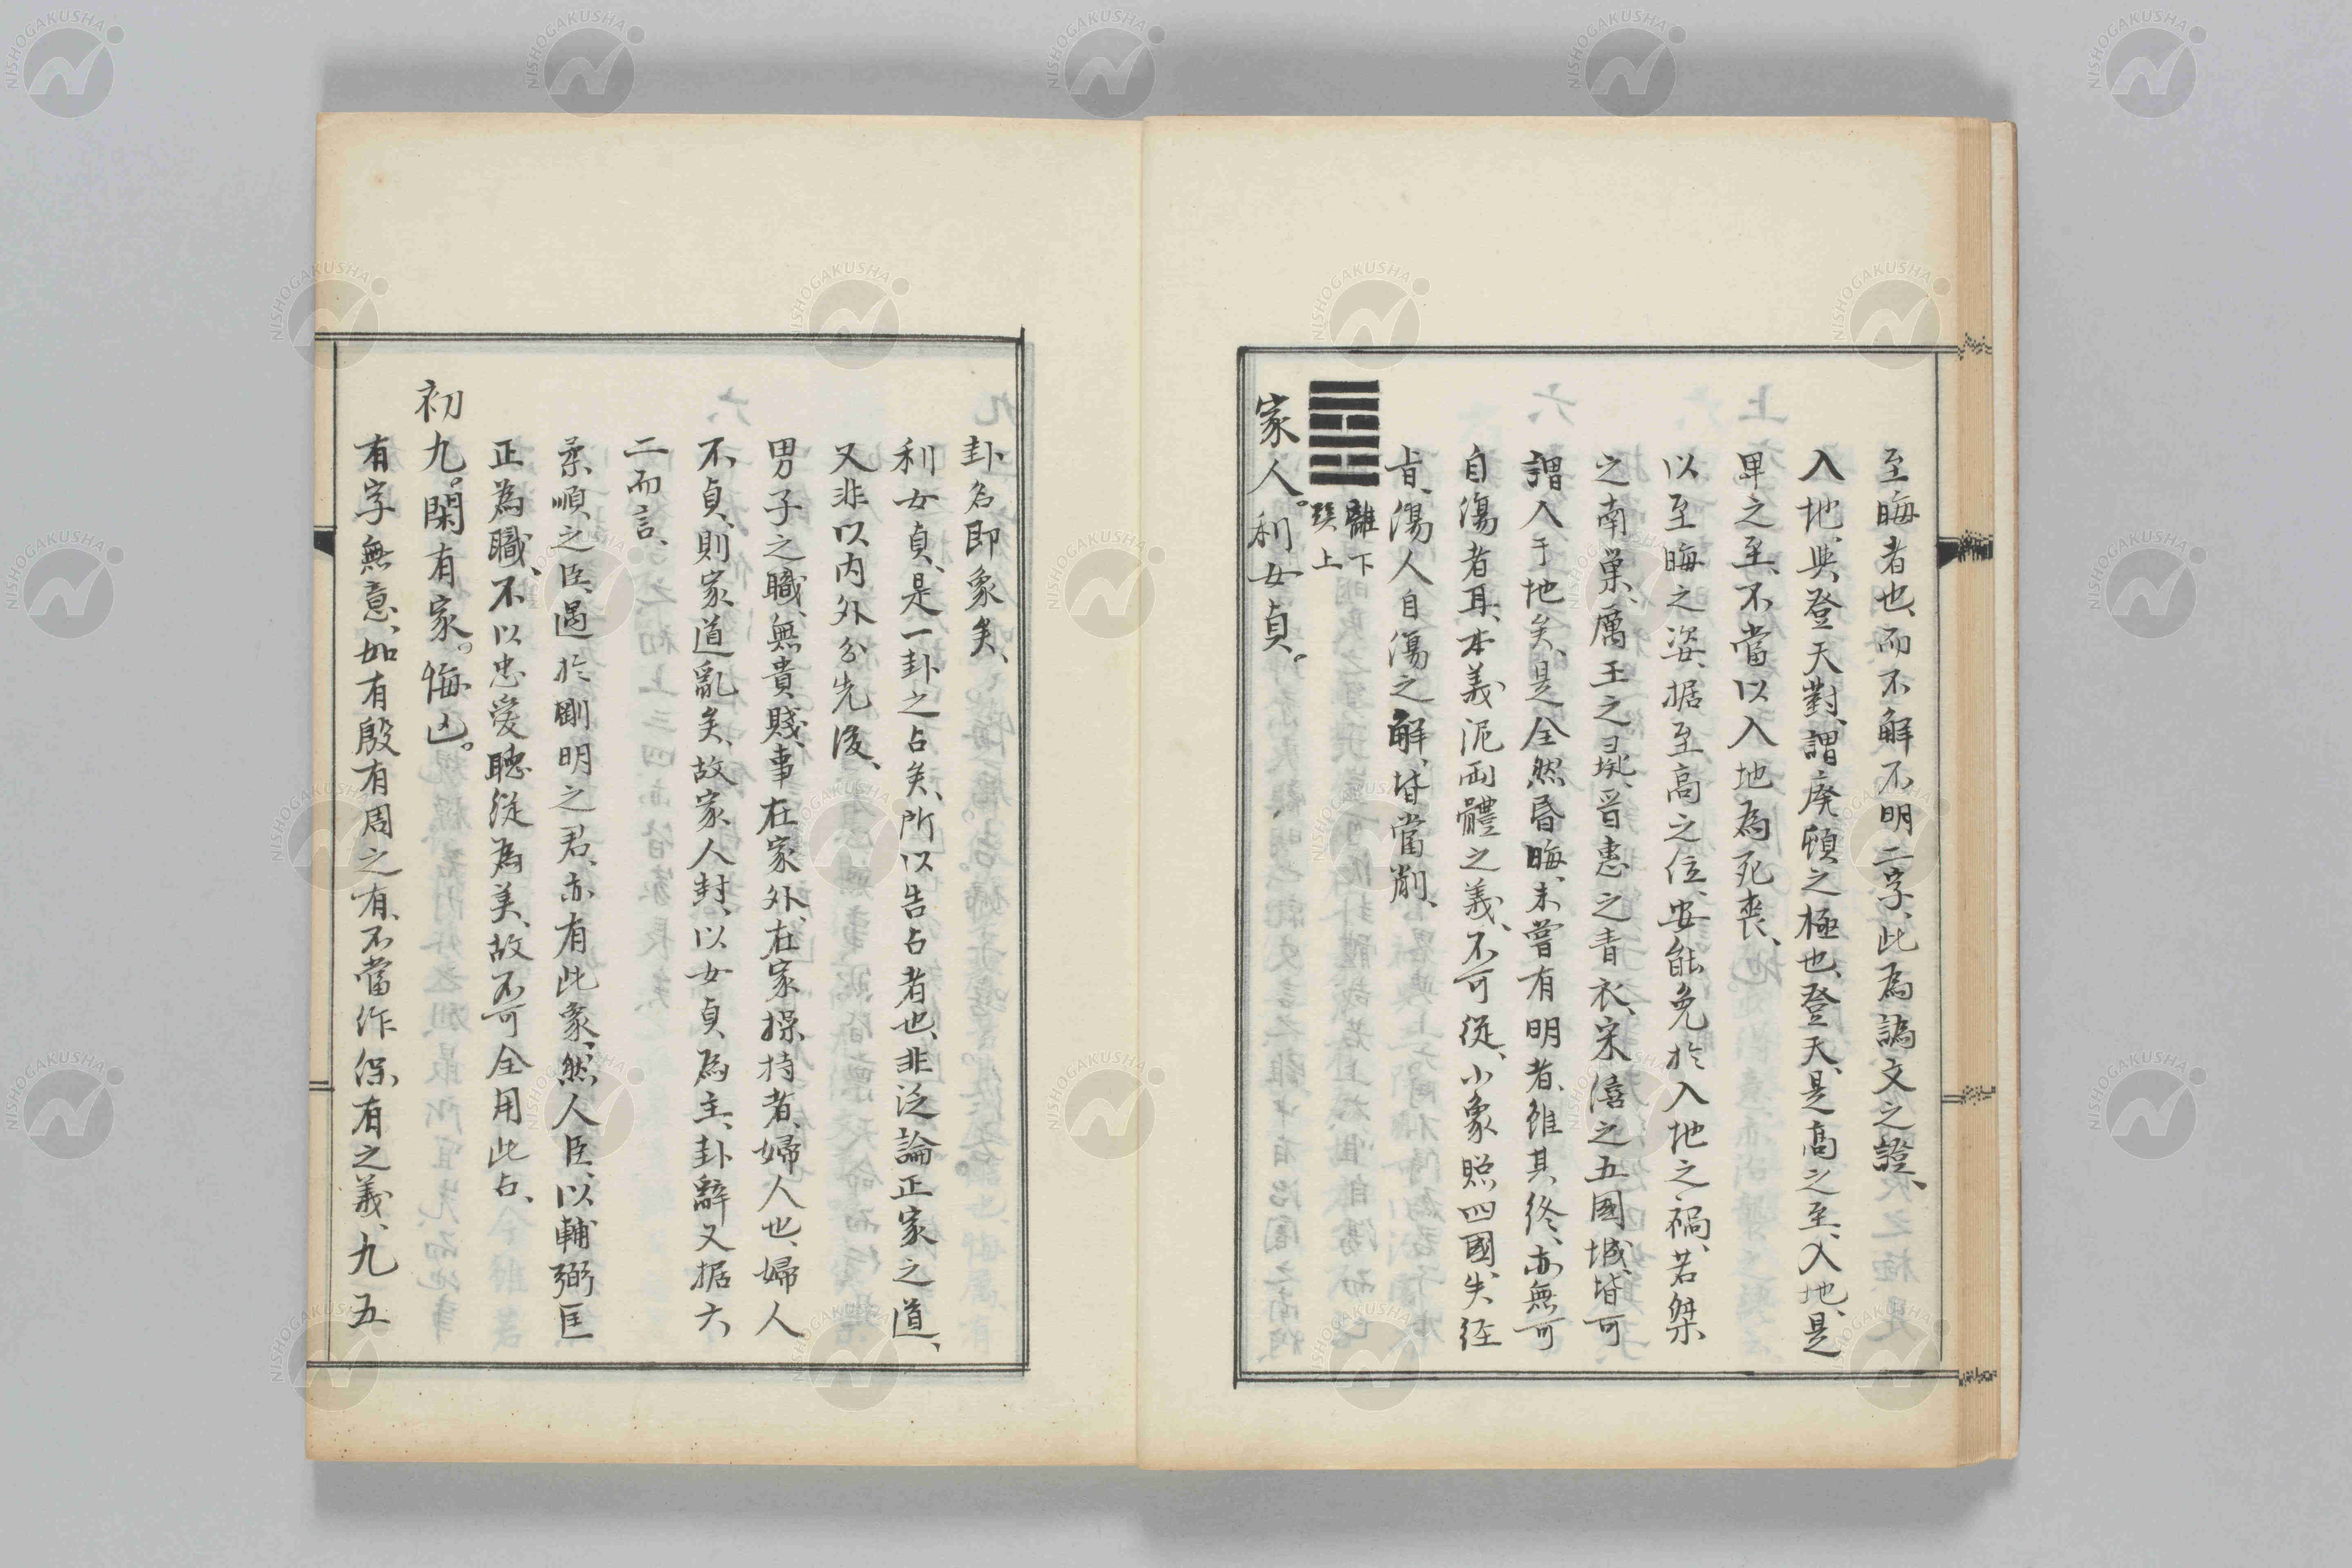 至晦者也、而不解不明二字、此為譌文之證、
入地、與登天對、謂廃頽之極也、登天、是高之至、入地、是
卑之至、不當以入地為死喪、
以至晦之姿、据至高之位、安能免於入地之禍、若桀
之南巣、厲王之彘、晋惠之青衣、宋僖之五國城、皆可
謂入于地矣、是全然昏晦、未嘗有明者、雖其終、亦無可
自傷者耳、本義泥両體之義、不可從、小象照四國、失径
旨、傷人自傷之解、皆當削、
離下
巽上
家人。利女貞。
卦名即象矣、
利女貞、是一卦之占矣、所以告占者也、非泛論正家之道、
又非以内外分先後、
男子之職、無貴賤、事在家外、在家操持者、婦人也、婦人
不貞、則家道亂矣、故家人封、以女貞為主、卦辭又据六
二而言、
柔順之臣、遇於剛明之君、亦有此象、然人臣、以輔弼匡
正為職、不以忠愛聴従為美、故不可全用此占、
初九。閑有家。悔亡。
有字無意、如有殷有周之有、不當作保有之義、九五
NISHOGAKUSHA